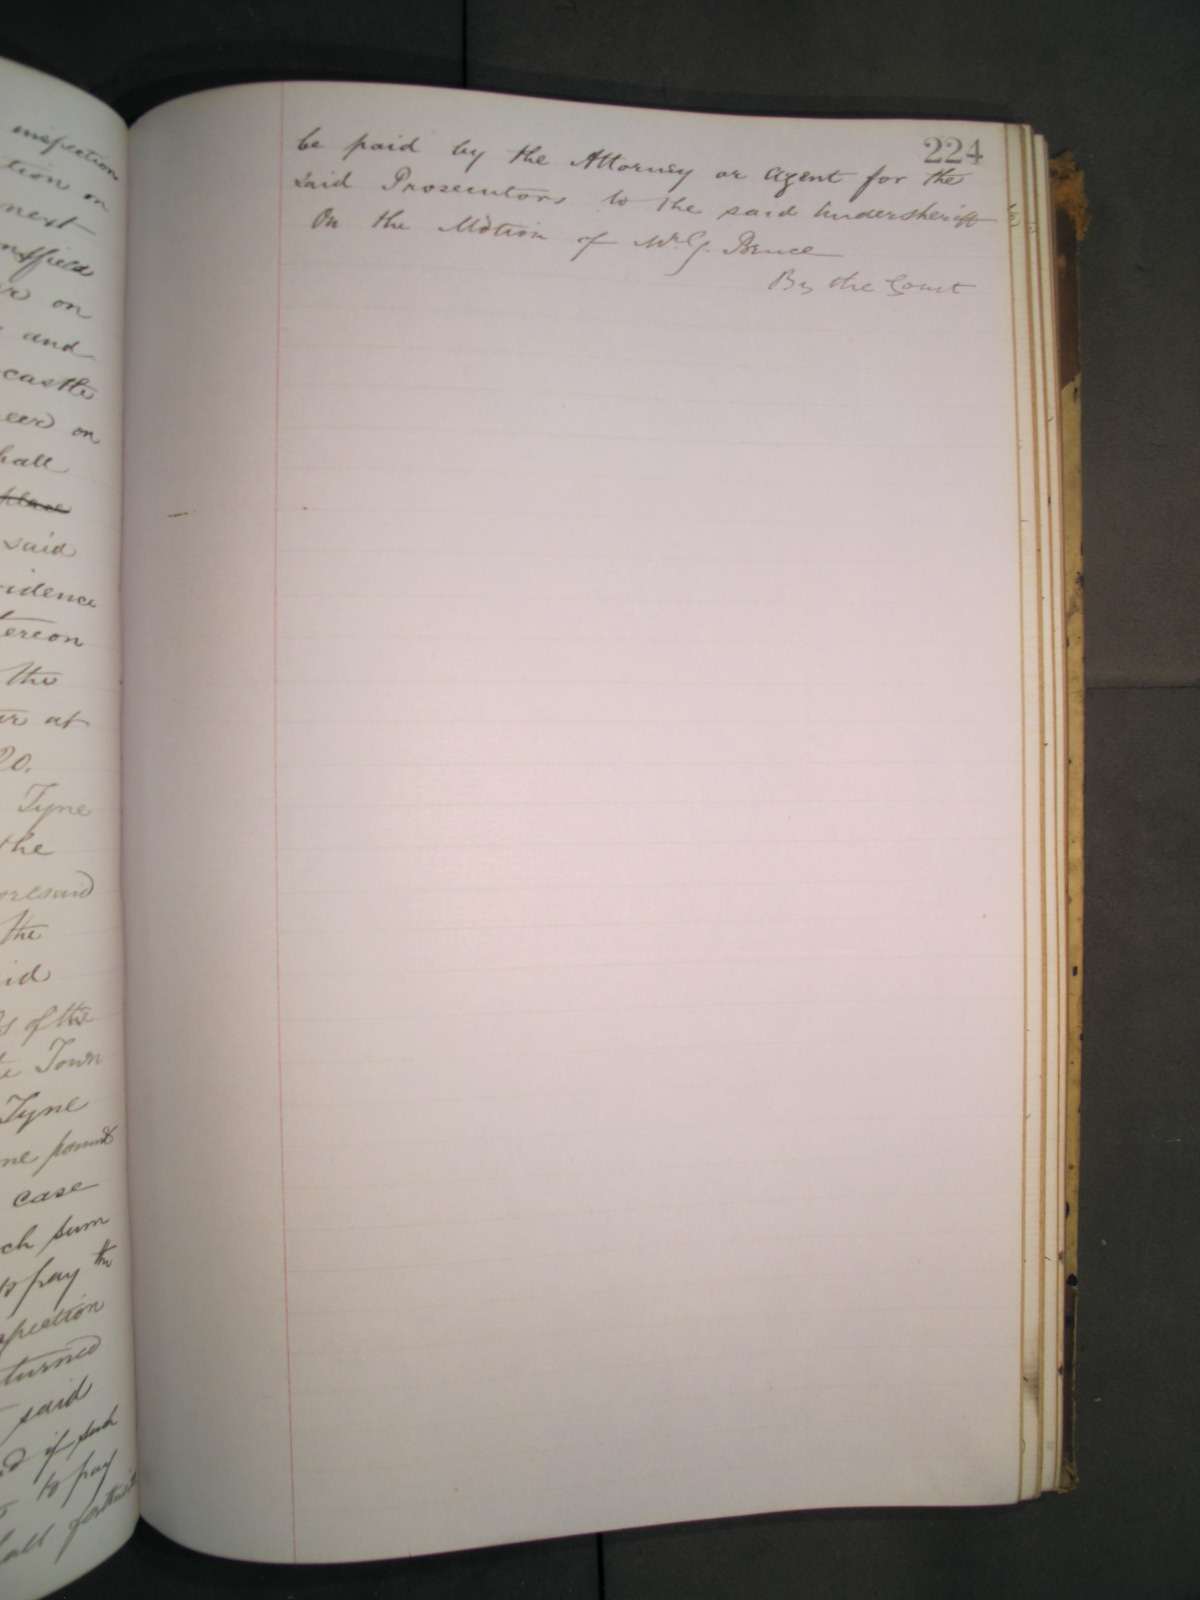 inspection
tion on
next
nsfield
r on
and
castle
eer on
hall
place
said
idence
ereon
the
er at
20.
Tyne
the
oresaid
the
id
s of the
e Town
Tyne
ne pounds
case
ch sum
to pay the
spection
turned
said
d if such
to pay
all forthwith
224
be paid by the Attorney or agent for the
said Prosecutors to the said Undersheriff
On the Motion of Mr. G. Bruce
By the Court